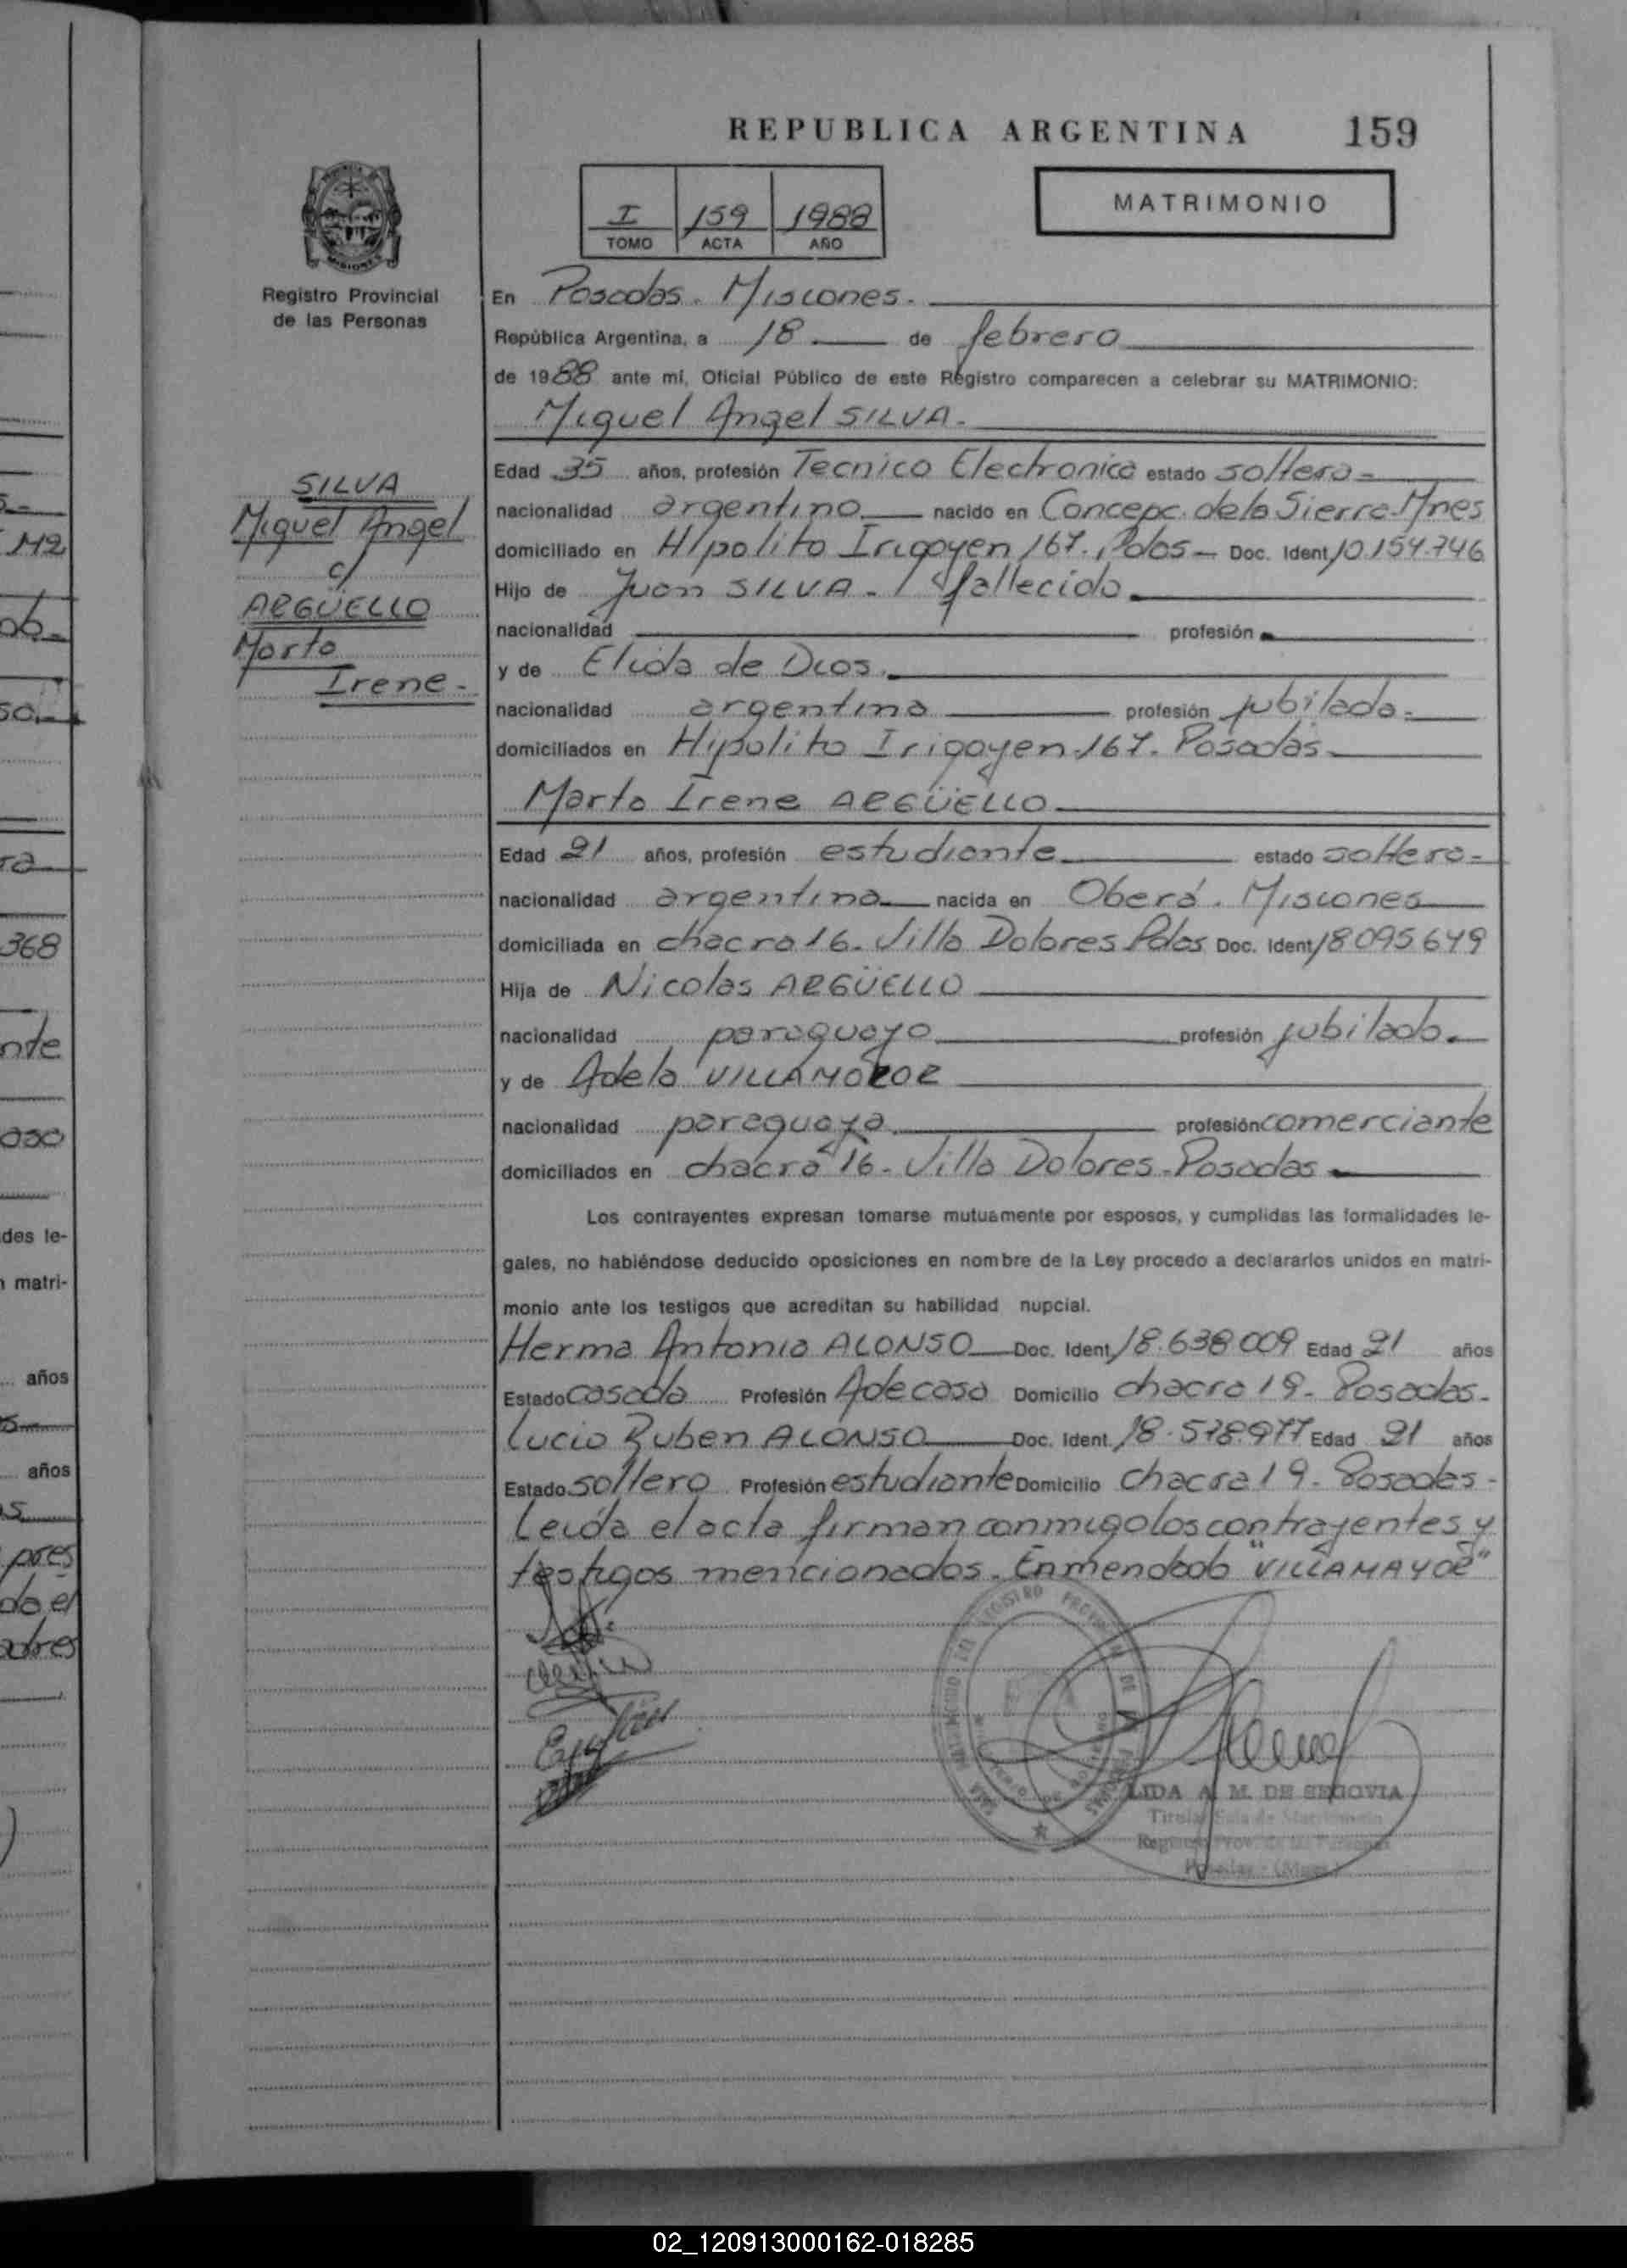 REPUBLICA ARGENTINA 159
MATRIMONIO
I 159 1988
TOMO ACTA AÑO
MISIONES
Registro Provincial
de las Personas
En Posadas. Misiones.
República Argentina, a 18 de febrero
de 1988 ante mí, Oficial Público de este Registro comparecen a celebrar su MATRIMONIO:
Miguel Angel SILVA.
SILVA
Miguel Angel
c/
ARGÜELLO
Marta
Irene-
Edad 35 años, profesión Tecnico Electronico estado soltero-
nacionalidad argentino nacido en Concepc. de la Sierra-Mnes
domiciliado en Hipolito Irigoyen 167. Pdas- Doc. Ident 10.154.746
Hijo de Juan SILVA. / fallecido
nacionalidad profesión
y de Elida de Dios.
nacionalidad argentina profesión jubilada-
domiciliados en Hipolito Irigoyen 167. Posadas
Marta Irene ARGÜELLO
Edad 21 años, profesión estudiante estado soltera-
nacionalidad argentina nacida en Oberá. Misiones
domiciliada en chacra 16- Villa Dolores Pdas Doc. Ident 18095649
Hija de Nicolas ARGÜELLO
nacionalidad paraguayo profesión jubilado.
y de Adela
nacionalidad paraguaya profesión comerciante
domiciliados en chacra 16- Villa Dolores-Posadas
Los contrayentes expresan tomarse mutuamente por esposos, y cumplidas las formalidades le-
gales, no habiéndose deducido oposiciones en nombre de la Ley procedo a declararlos unidos en matri-
monio ante los testigos que acreditan su habilidad nupcial.
Herma Antonia ALONSO Doc. Ident 18.638009 Edad 21 años
Estado casada Profesión Adecasa Domicilio chacra 19- Posadas-
Lucio Ruben ALONSO Doc. Ident. 18.578.977 Edad 21 años
Estado soltero Profesión estudiante Domicilio chacra 19- Posadas-
Leida el acta firman conmigo los contrayentes y
testigos mencionados. Enmendado "VILLAMAYOR"
LIDA A. M. DE SEGOVIA
Titular Sala de Matrimonio
Posadas - (Mnes.)
M2
ob-
368
nte
des le-
matri-
años
años
pres
do el
adres
02_120913000162-018285